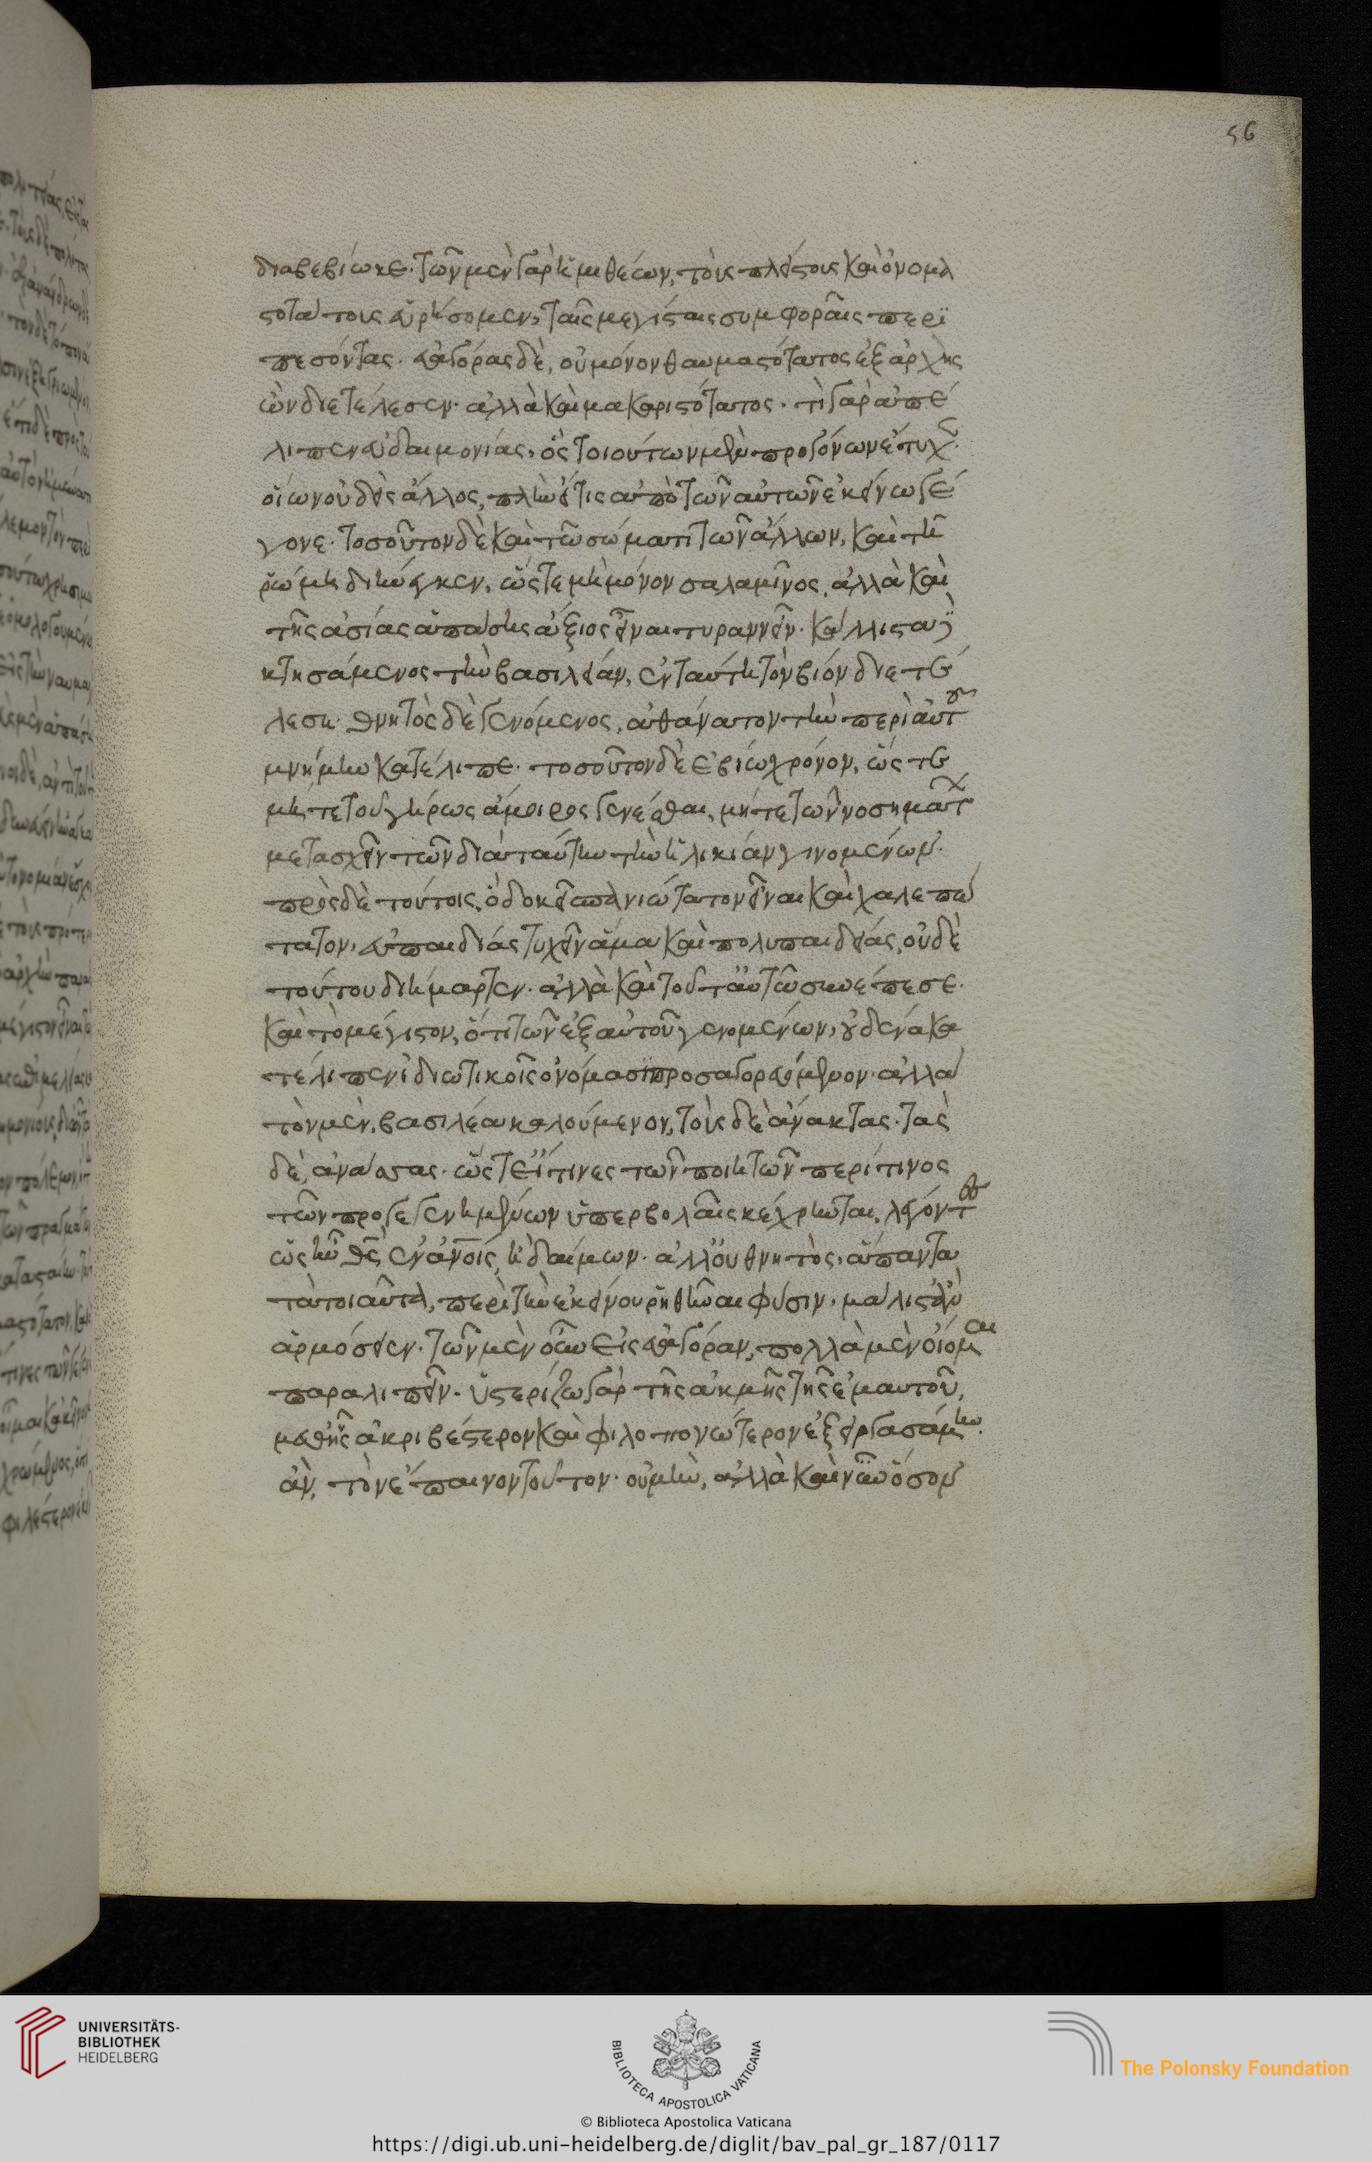 56
διαβεβίωκε. τῶν μὲν γὰρ ἡμιθέων, τοὺς πλείστους καὶ ὀνομα
στοτάτους εὑρήσομεν, ταῖς μεγίσταις συμφοραῖς περι
πεσόντας. εὐαγόρας δὲ, οὐ μόνον θαυμαστότατος ἐξ ἀρχῆς
ὢν διετέλεσεν. ἀλλὰ καὶ μακαριστότατος. τί γὰρ ἀπέ
λιπεν εὐδαιμονίας, ὃς τοιούτων μὲν προγόνων ἔτυχεν.
οἵων οὐδεὶς ἄλλος, πλὴν εἴ τις ἀπὸ τῶν αὐτῶν ἐκείνω γέ
γονε. τοσοῦτον δὲ καὶ τῶ σώματι τῶν ἄλλων, καὶ τῆ
ῥώμη διήνεγκεν, ὥστε μὴ μόνον σαλαμῖνος, ἀλλὰ καὶ
τῆς ἀσίας ἁπάσης ἄξιος εἶναι τυραννεῖν. κάλλιστα δὲ
κτησάμενος τὴν βασιλείαν, ἐν ταύτη τὸν βίον διετέ
λεσε. θνητὸς δὲ γενόμενος, ἀθάνατον τὴν περὶ αὑτοῦ
μνήμην κατέλιπε. τοσοῦτον δὲ ἐβίω χρόνον, ὥστε
μήτε τοῦ γήρως ἄμοιρος γενέσθαι, μήτε τῶν νοσημάτων
μετασχεῖν τῶν διὰ ταύτην τὴν ἡλικίαν γινομένων.
πρὸς δὲ τούτοις, ὃ δοκεῖ σπανιώτατον εἶναι καὶ χαλεπώ
τατον, εὐπαιδίας τυχεῖν ἅμα καὶ πολυπαιδείας, οὐδὲ
τούτου διήμαρτεν. ἀλλὰ καὶ τοῦτ' αὐτῶ συνέπεσε.
καὶ τὸ μέγιστον, ὅτι τῶν ἐξ αὐτοῦ γενομένων, οὐδένα κα
τέλιπεν ἰδιωτικοῖς ὀνόμασι προσαγορευόμενον. ἀλλὰ
τὸν μὲν, βασιλέα καλούμενον, τοὺς δὲ ἄνακτας. τὰς
δὲ, ἀνάσσας. ὥστ' εἴ τινες τῶν ποιητῶν περί τινος
τῶν προγεγενημένων ὑπερβολαῖς κέχρηνται, λέγοντες
ὡς ἦν θεὸς ἐν ἀνοις, ἢ δαίμων. ἀλλ' οὐ θνητὸς, ἅπαντα
τὰ τοιαῦτα, περὶ τὴν ἐκείνου ῥηθῆναι φύσιν, μάλιστ' ἂν
ἁρμόσειεν. τῶν μὲν οὖν εἰς εὐαγόραν, πολλὰ μὲν οἶομαι
παραλιπεῖν. ὑστερίζω γὰρ τῆς ἀκμῆς τῆς ἐμαυτοῦ,
μεθ' ἧς ἀκριβέστερον καὶ φιλοπονώτερον ἐξειργασάμην
ἂν, τὸν ἔπαινον τοῦτον. οὐ μὴν, ἀλλὰ καὶ νῦν ὅσον
UNIVERSITÄTS-
BIBLIOTHEK
HEIDELBERG
BIBLIOTECA APOSTOLICA VATICANA
The Polonsky Foundation
© Biblioteca Apostolica Vaticana
https://digi.ub.uni-heidelberg.de/diglit/bav_pal_gr_187/0117